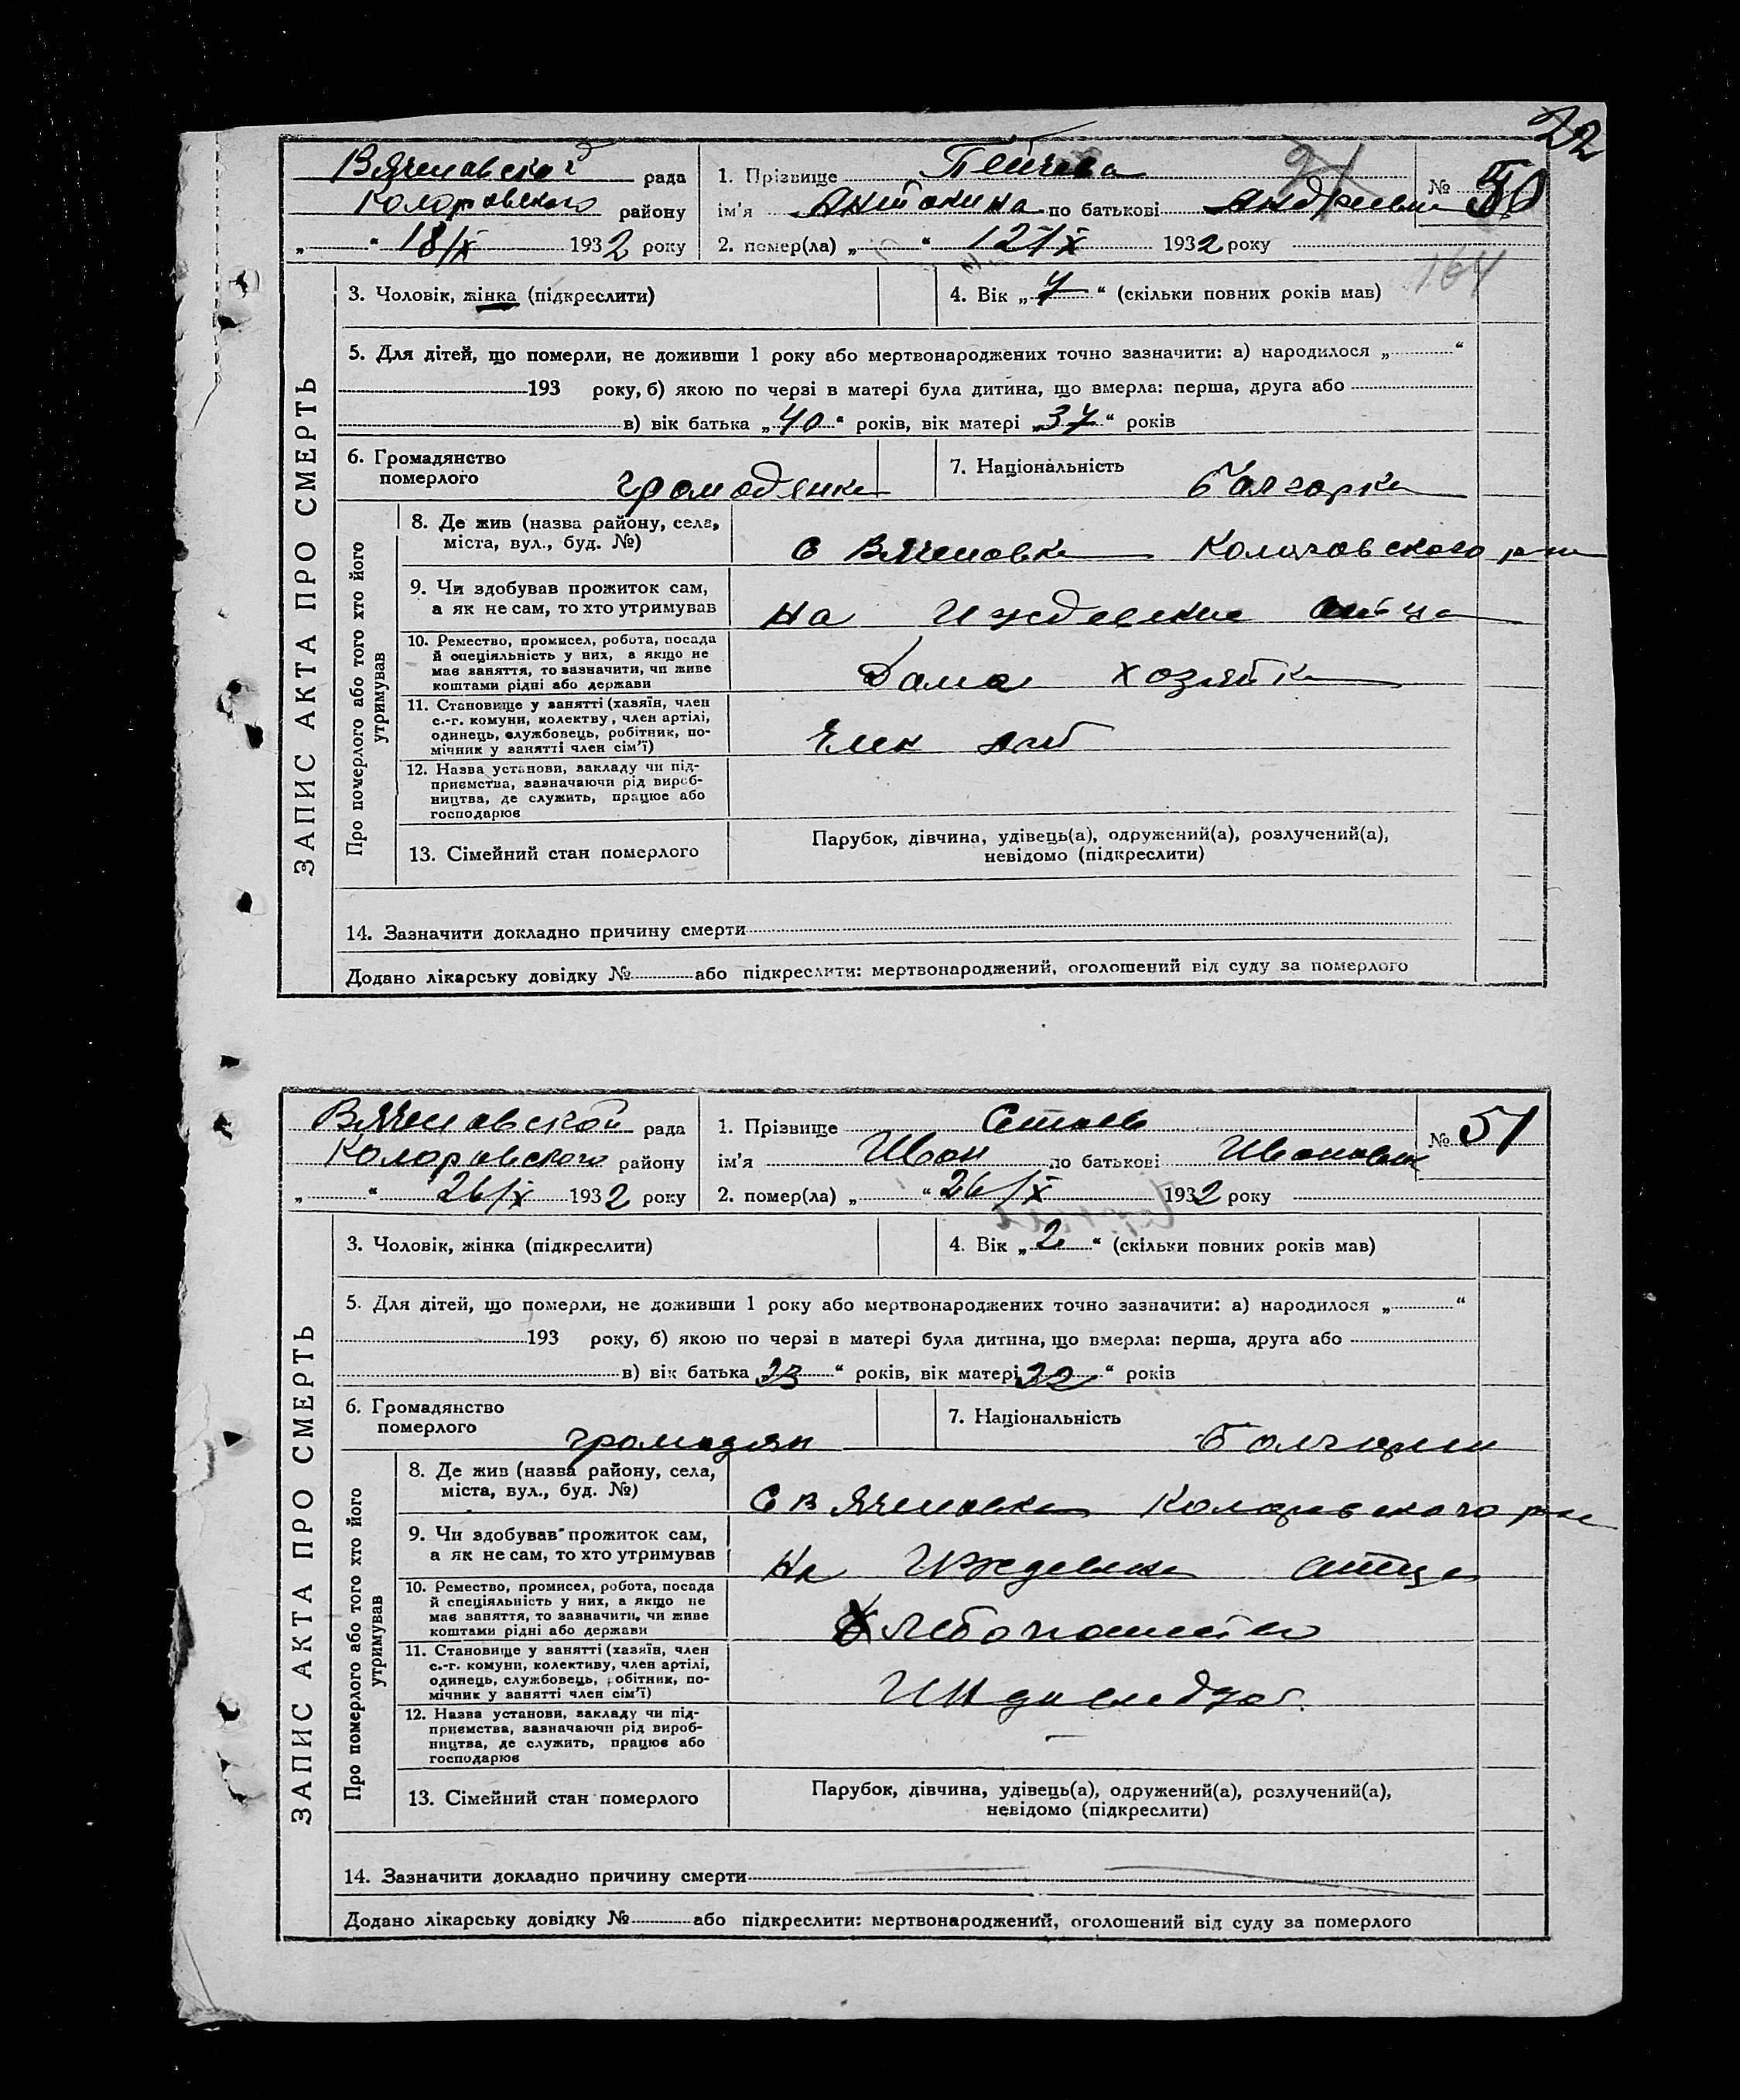 22
Вячеславской рада
Коларовского району
„ “ 18/X 1932 року
1. Прізвище Пейчева
ім'я Антонина по батькові Андреевн
2. помер(ла) „ “ 12/X 1932 року
21
№ 50
164
ЗАПИС АКТА ПРО СМЕРТЬ
3. Чоловік, жінка (підкреслити)
4. Вік „ 7 “ (скільки повних років мав)
5. Для дітей, що померли, не доживши 1 року або мертвонароджених точно зазначити: а) народилося „ “
193 року, б) якою по черзі в матері була дитина, що вмерла: перша, друга або
в) вік батька „ 40 “ років, вік матері „ 37 “ років
6. Громадянство
померлого громадянка
7. Національність Болгарка
Про померлого або того хто його
утримував
8. Де жив (назва району, села,
міста, вул., буд. №)
С Вячеловка Коларовского р-на
9. Чи здобував прожиток сам,
а як не сам, то хто утримував
на иждевение отца
10. Ремество, промисел, робота, посада
й спеціяльність у них, а якщо не
має заняття, то зазначити, чи живе
коштами рідні або держави
Дома хозяйка
11. Становище у занятті (хазяїн, член
с.-г. комуни, колектву, член артілі,
одинець, службовець, робітник, по-
мічник у занятті член сім'ї)
Член
12. Назва установи, закладу чи під-
приємства, зазначаючи рід вироб-
ництва, де служить, працює або
господарює
13. Сімейний стан померлого
Парубок, дівчина, удівець(а), одружений(а), розлучений(а),
невідомо (підкреслити)
14. Зазначити докладно причину смерти
Додано лікарську довідку № або підкреслити: мертвонароджений, оголошений від суду за померлого
Вячеславской рада
Коларовского району
„ “ 26/X 1932 року
1. Прізвище Стоев
ім'я Иван по батькові Иванович
2. помер(ла) „ “ 26/X 1932 року
№ 51
ЗАПИС АКТА ПРО СМЕРТЬ
3. Чоловік, жінка (підкреслити)
4. Вік „ 2 “ (скільки повних років мав)
5. Для дітей, що померли, не доживши 1 року або мертвонароджених точно зазначити: а) народилося „ “
193 року, б) якою по черзі в матері була дитина, що вмерла: перша, друга або
в) вік батька „ 23 “ років, вік матері 22 “ років
6. Громадянство
померлого громадян
7. Національність Болгарин
Про померлого або того хто його
утримував
8. Де жив (назва району, села,
міста, вул., буд. №)
С Вячеловка Коларовского р-на
9. Чи здобував прожиток сам,
а як не сам, то хто утримував
На Иждевение отца
10. Ремество, промисел, робота, посада
й спеціяльність у них, а якщо не
має заняття, то зазначити, чи живе
коштами рідні або держави
Хлебопашество
11. Становище у занятті (хазяїн, член
с.-г. комуни, колективу, член артілі,
одинець, службовець, робітник, по-
мічник у занятті член сім'ї)
12. Назва установи, закладу чи під-
приємства, зазначаючи рід вироб-
ництва, де служить, працює або
господарює
—
13. Сімейний стан померлого
Парубок, дівчина, удівець(а), одружений(а), розлучений(а),
невідомо (підкреслити)
14. Зазначити докладно причину смерти
Додано лікарську довідку № або підкреслити: мертвонароджений, оголошений від суду за померлого